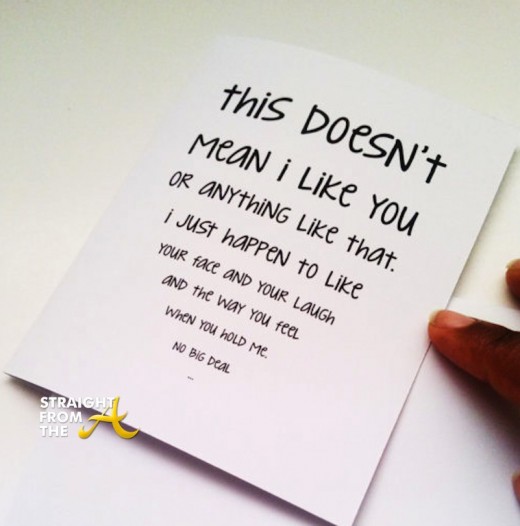 this DOESN't
MEAN i Like YOU
OR ANYthiNG Like that.
i JUSt haPPEN to Like
YOUR face AND YOUR LAUGh
AND the WAY YOU feeL
WhEN YOU hOLD ME.
NO BiG DEAL
...
STRAIGHT
FROM
THE A